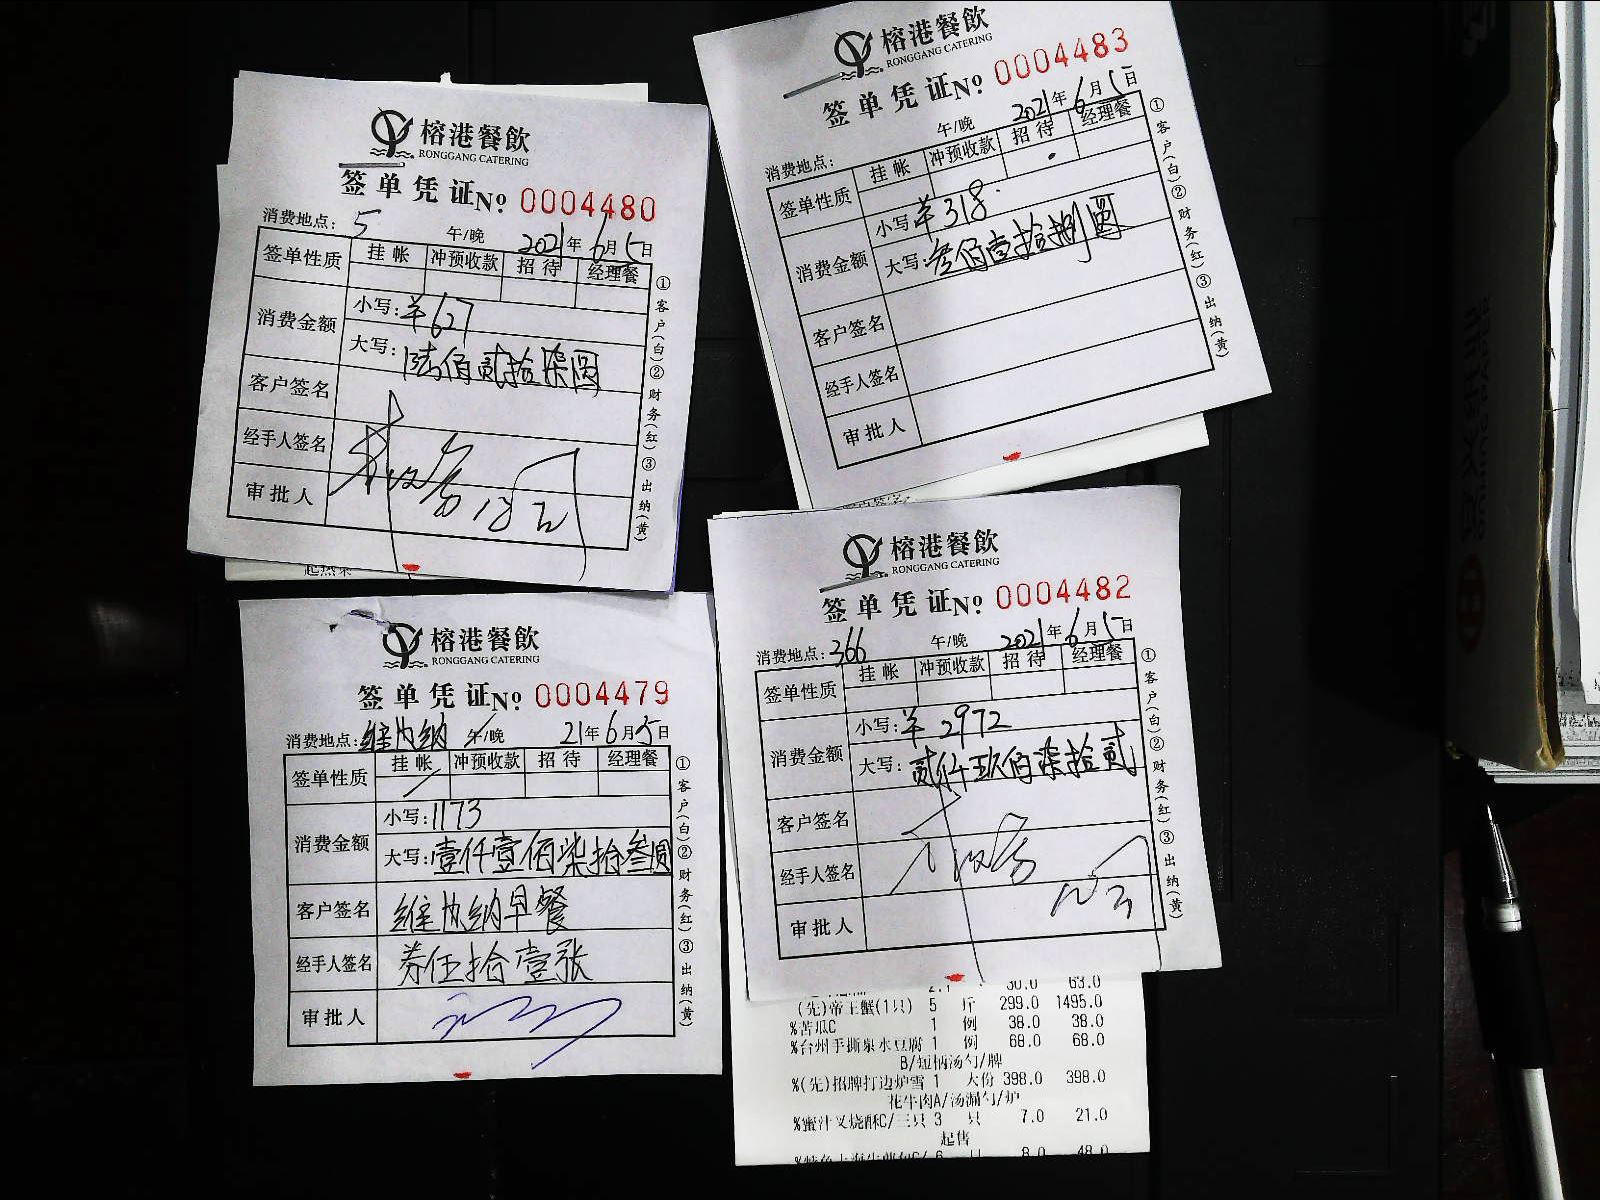 榕港餐飲
RONGGANG CATERING
签单凭证 No 0004480
消费地点: 5 午/晚 2021年6月5日
签单性质 挂帐 冲预收款 招待 经理餐
消费金额 小写:¥627
大写:陆佰贰拾柒圆
客户签名
经手人签名
审批人
①客户(白)②财务(红)③出纳(黄)
榕港餐飲
RONGGANG CATERING
签单凭证 No 0004483
消费地点: 午/晚 2021年6月5日
签单性质 挂帐 冲预收款 招待 经理餐
消费金额 小写¥318
大写:叁佰壹拾捌圆
客户签名
经手人签名
审批人
①客户(白)②财务(红)③出纳(黄)
榕港餐飲
RONGGANG CATERING
签单凭证 No 0004479
消费地点:维也纳 午/晚 21年6月5日
签单性质 挂帐 冲预收款 招待 经理餐
消费金额 小写:1173
大写:壹仟壹佰柒拾叁圆
客户签名 维也纳早餐
经手人签名 券伍拾壹张
审批人
①客户(白)②财务(红)③出纳(黄)
榕港餐飲
RONGGANG CATERING
签单凭证 No 0004482
消费地点:366 午/晚 2021年6月5日
签单性质 挂帐 冲预收款 招待 经理餐
消费金额 小写:¥2972
大写:贰仟玖佰柒拾贰
客户签名
经手人签名
审批人
①客户(白)②财务(红)③出纳(黄)
2.1 30.0 63.0
(先)帝王蟹(1只) 5 斤 299.0 1495.0
%苦瓜C 1 例 38.0 38.0
%台州手撕泉水豆腐 1 例 68.0 68.0
B/短柄汤勺/牌
%(先)招牌打边炉雪 1 大份 398.0 398.0
花牛肉A/汤漏勺/炉
%蜜汁叉烧酥C/三只 3 只 7.0 21.0
起售
6 只 8.0 48.0